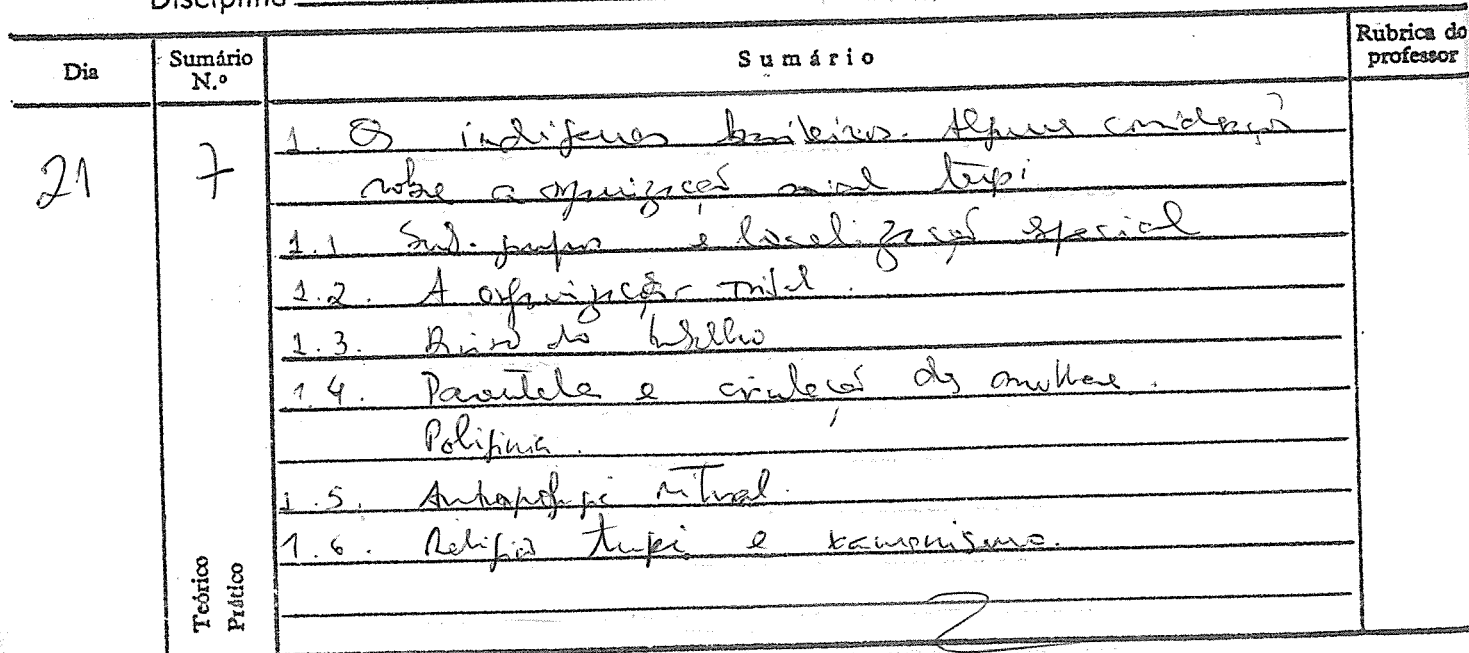 Disciplina
Dia
Sumário N.º
Sumário
Rúbrica do professor
21
7
1. Os indígenas brasileiros. Algumas considerações
sobre a organização social tupi
1.1 Sub-grupos e localização espacial
1.2. A organização tribal.
1.3. Divisão do trabalho
1.4. Parentela e circulação das mulheres.
Poliginia.
1.5. Antropofagia ritual.
1.6. Religião tupi e xamanismo.
Teórico
Prático